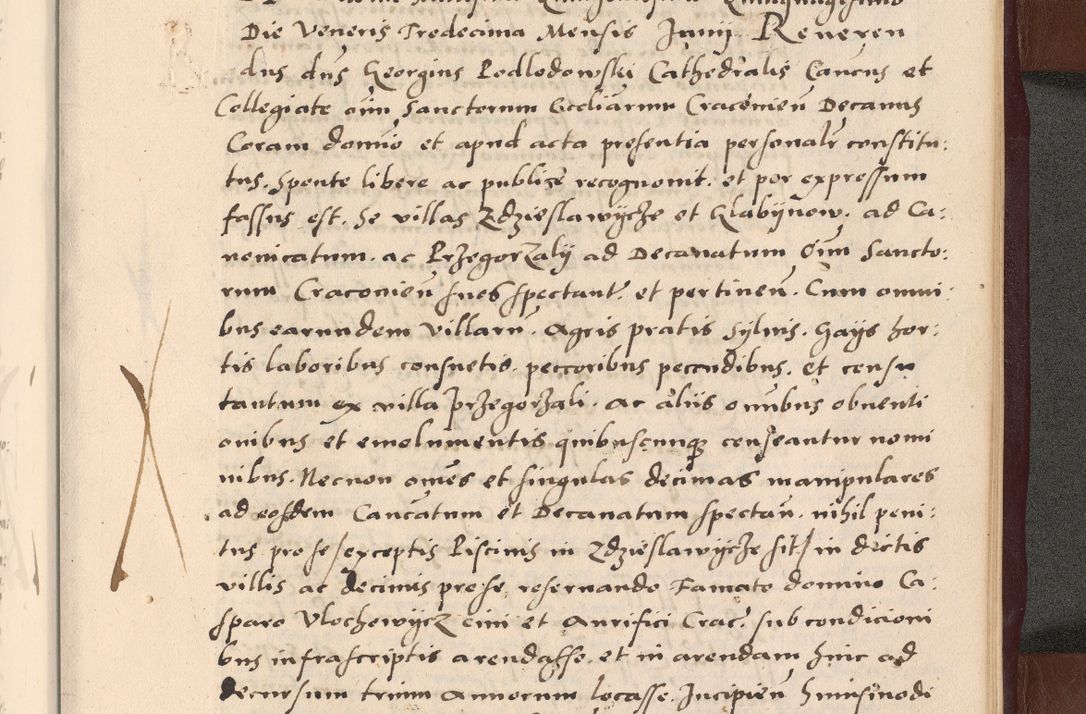 Die Veneris Tredecima Mensis Junij Reveren
dus dns Georgius Podlodowski Cathedralis Cancus et
Collegiate oim Sanctorum Eccliarum Cracovien Decanus
Coram domino et apud acta presentia personalr constitu:
tus. Sponte libere ac publice recognovit. et per expressum
fassus est. Se villas Zdzieslawycze et Glabynow. ad Ca:
nonicatum. ac Przegorzaly ad Decanatum Oim Sancto:
rum Cracovien suos spectant. et pertinen. Cum omni:
bus earundem villaru. Agris pratis Sylvis. Gays hor:
tis laboribus consuetis. peccoribus pecudibus. et censu
tantum ex villa Przegorzali. ac aliis omnibus obventi
onibus et emolumentis quibuscunque censeantur nomi
nibus. Necnon omnes et singulas decimas manipulares
ad eosdem Cancatum et Decanatum spectan. nihil peni:
tus pro se /exceptis Piscinis in Zdzieslawycze sit/ in dictis
villis ac decimis pro se reservando Famato domino Ca:
sparo Vlochowycz civi et Aurifici Crac. sub condicioni
bus infrascriptis arendasse. et in arendam hinc ad
decursum trium Annorum locasse. Incipien huiusmodi